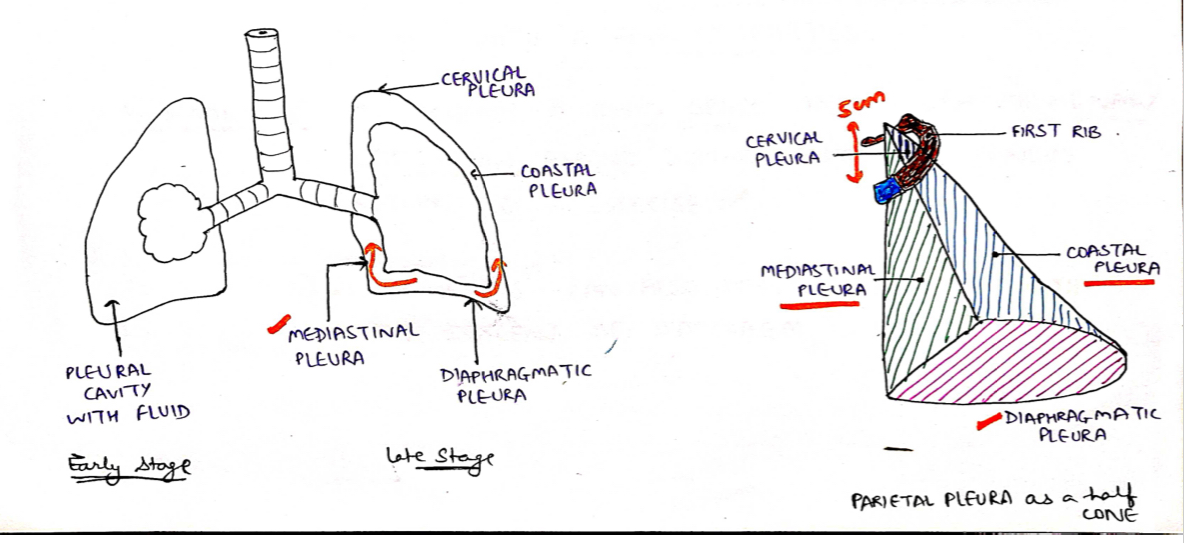 CERVICAL
PLEURA
COASTAL
PLEURA
MEDIASTINAL
PLEURA
DIAPHRAGMATIC
PLEURA
PLEURAL
CAVITY
WITH FLUID
Early stage
late stage
5cm
CERVICAL
PLEURA
FIRST RIB
MEDIASTINAL
PLEURA
COASTAL
PLEURA
DIAPHRAGMATIC
PLEURA
PARIETAL PLEURA as a half
CONE